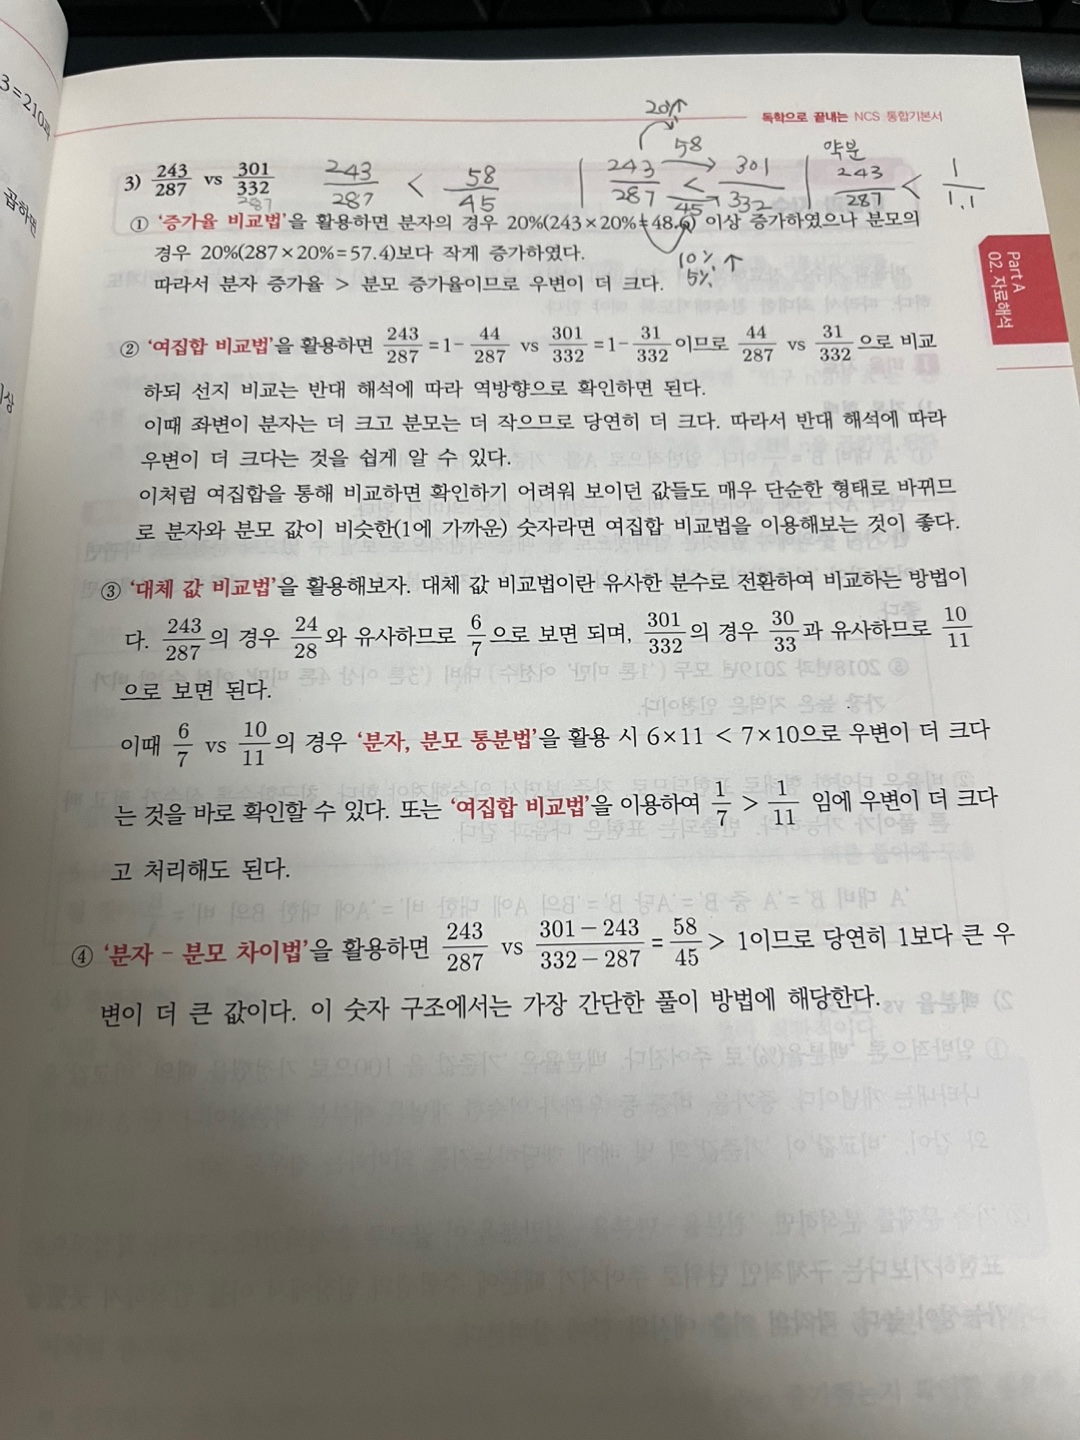 3=210과
곱하면
이상
독학으로 끝내는 NCS 통합기본서
Part A
02. 자료해석
20%↑
58
243/287 < 301/332
45
10%↑
5%
약분
243/287 < 1/1.1
243/287 < 58/45
3) 243/287 vs 301/332
287
① '증가율 비교법'을 활용하면 분자의 경우 20%(243×20%=48.6) 이상 증가하였으나 분모의
경우 20%(287×20%=57.4)보다 작게 증가하였다.
따라서 분자 증가율 > 분모 증가율이므로 우변이 더 크다.
② '여집합 비교법'을 활용하면 243/287=1-44/287 vs 301/332=1-31/332이므로 44/287 vs 31/332으로 비교
하되 선지 비교는 반대 해석에 따라 역방향으로 확인하면 된다.
이때 좌변이 분자는 더 크고 분모는 더 작으므로 당연히 더 크다. 따라서 반대 해석에 따라
우변이 더 크다는 것을 쉽게 알 수 있다.
이처럼 여집합을 통해 비교하면 확인하기 어려워 보이던 값들도 매우 단순한 형태로 바뀌므
로 분자와 분모 값이 비슷한(1에 가까운) 숫자라면 여집합 비교법을 이용해보는 것이 좋다.
③ '대체 값 비교법'을 활용해보자. 대체 값 비교법이란 유사한 분수로 전환하여 비교하는 방법이
다. 243/287의 경우 24/28와 유사하므로 6/7으로 보면 되며, 301/332의 경우 30/33과 유사하므로 10/11
으로 보면 된다.
이때 6/7 vs 10/11의 경우 '분자, 분모 통분법'을 활용 시 6×11 < 7×10으로 우변이 더 크다
는 것을 바로 확인할 수 있다. 또는 '여집합 비교법'을 이용하여 1/7 > 1/11 임에 우변이 더 크다
고 처리해도 된다.
④ '분자 - 분모 차이법'을 활용하면 243/287 vs 301-243/332-287=58/45> 1이므로 당연히 1보다 큰 우
변이 더 큰 값이다. 이 숫자 구조에서는 가장 간단한 풀이 방법에 해당한다.